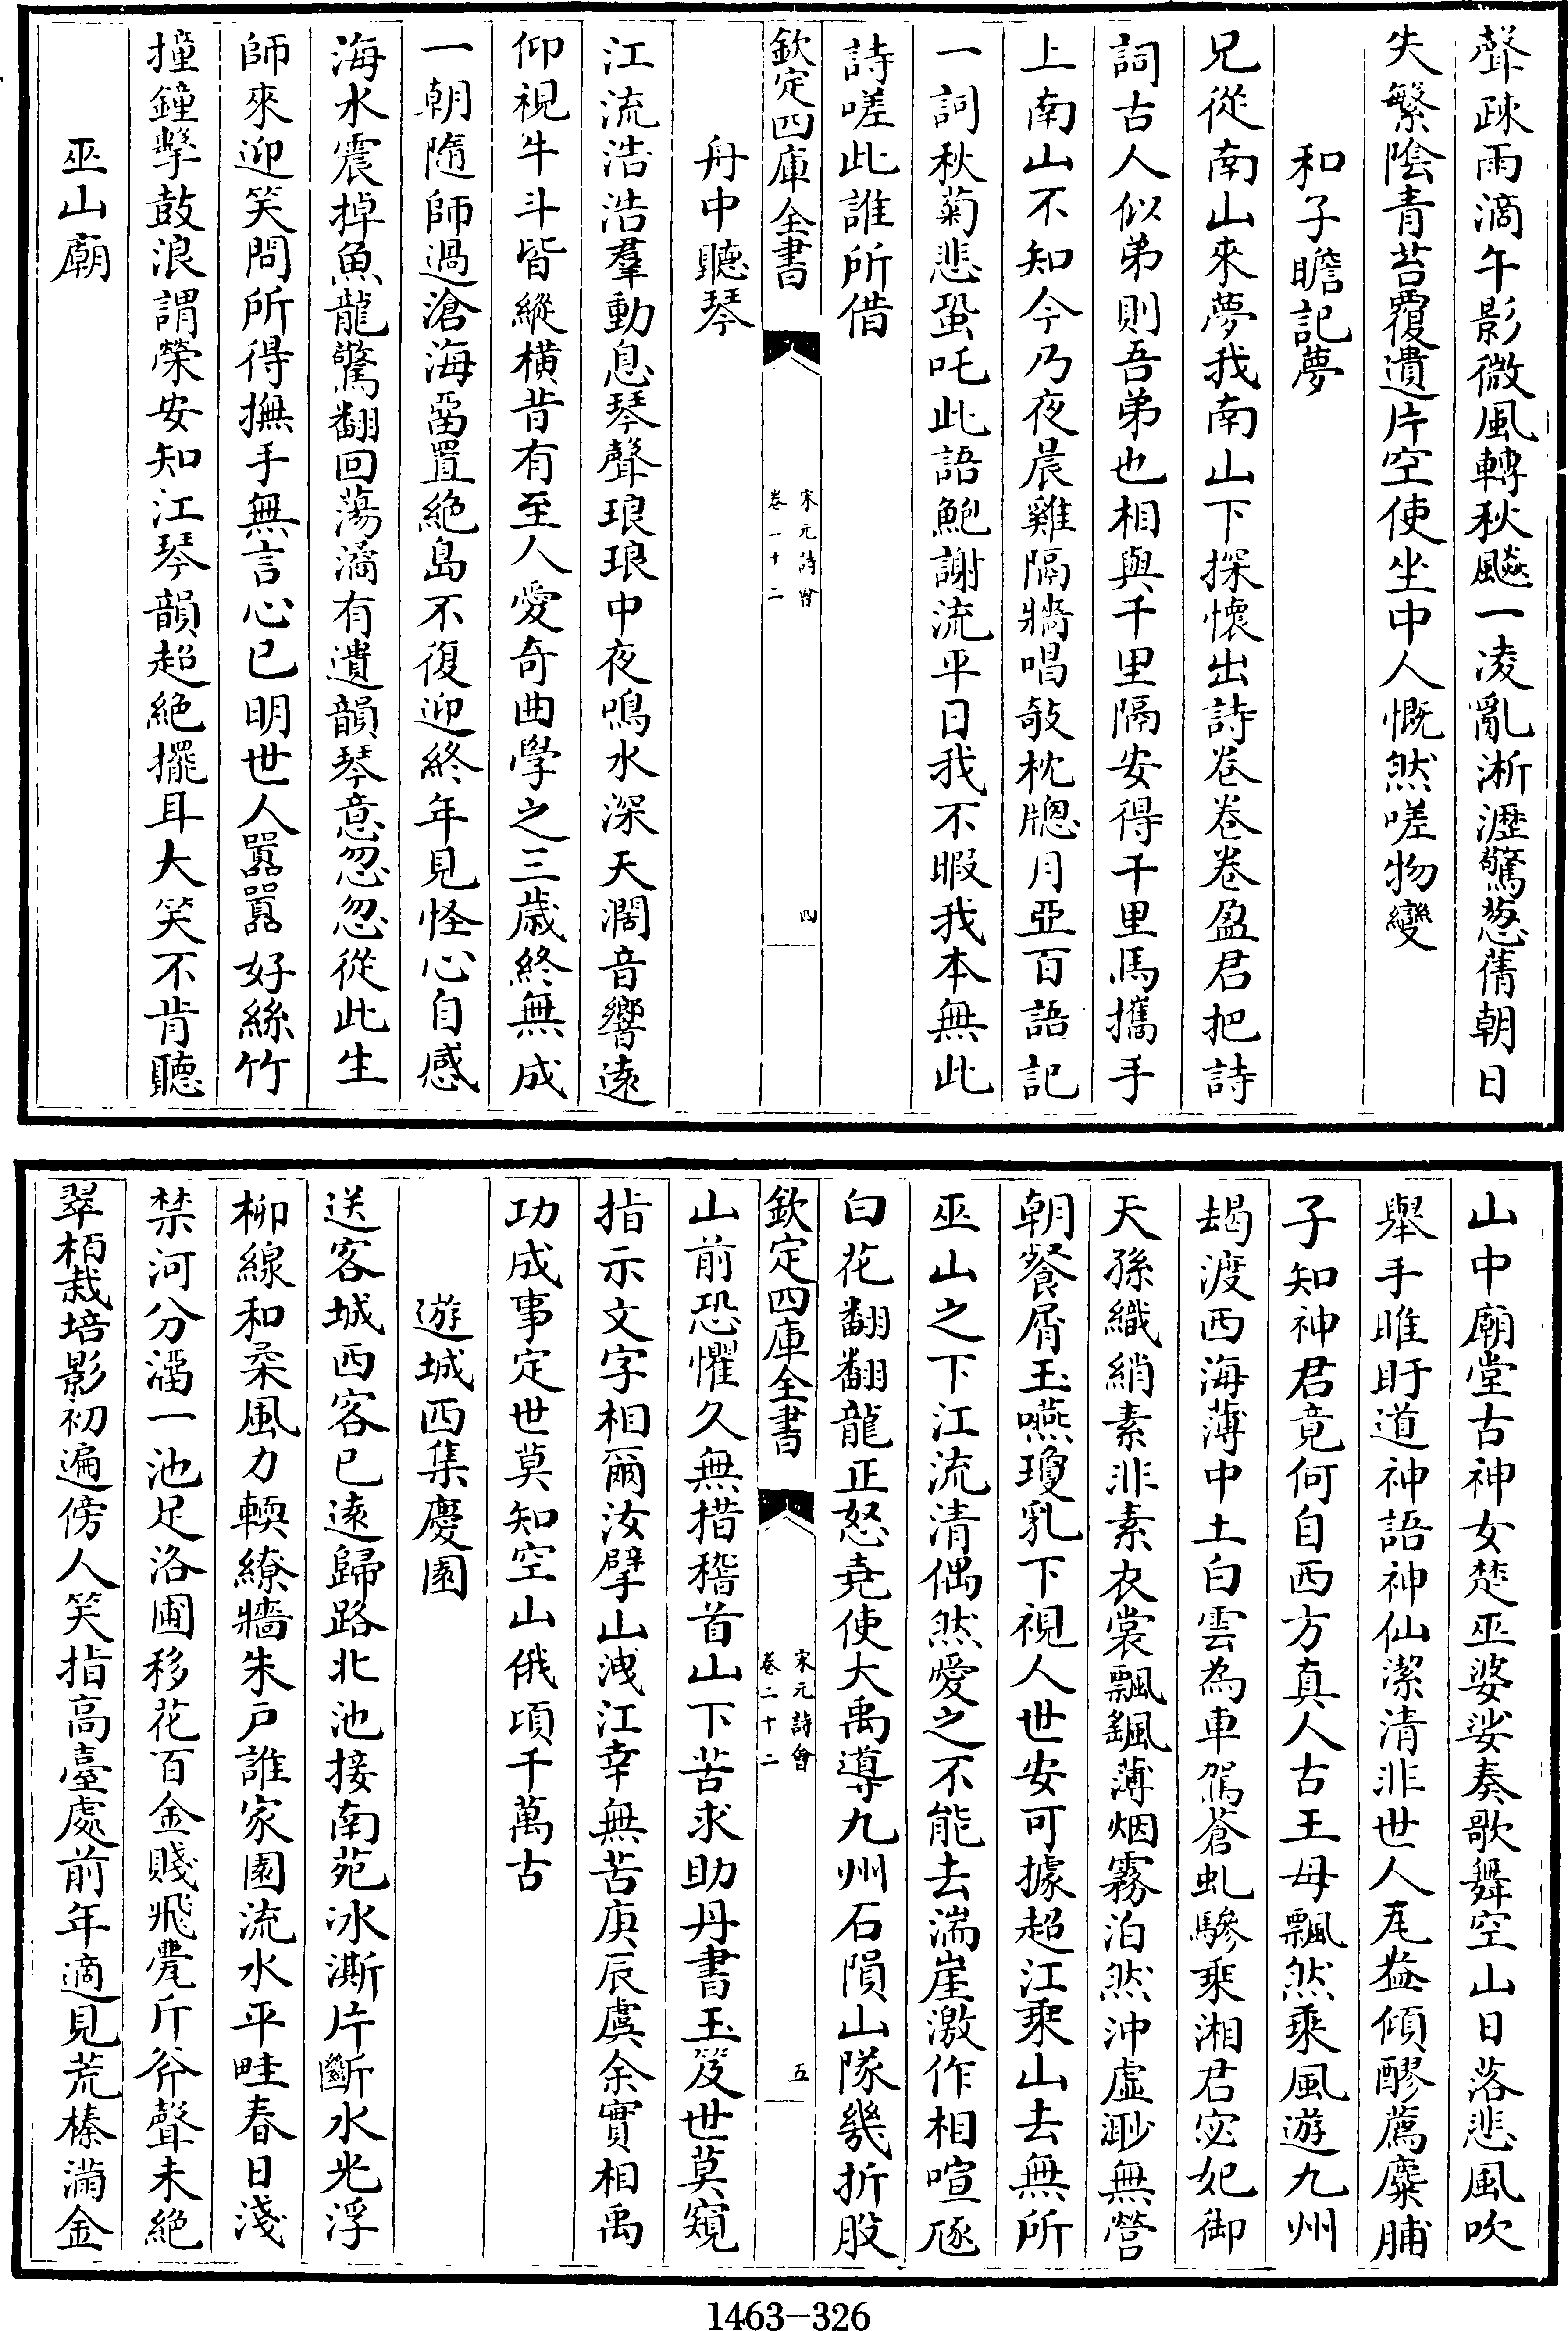 聲疎雨滴午影微風轉秋飈一凌亂淅瀝驚葱蒨朝日
失繁陰青苔覆遺片空使坐中人慨然嗟物變
和子瞻記夢
兄從南山來夢我南山下探懷出詩卷卷卷盈君把詩
詞古人似弟則吾弟也相與千里隔安得千里馬攜手
上南山不知今乃夜晨雞隔牆唱敧枕牕月亞百語記
一詞秋菊悲蛩吒此語鮑謝流平日我不暇我本無此
詩嗟此誰所借
欽定四庫全書
宋元詩會
卷二十二
四
舟中聽琴
江流浩浩羣動息琴聲琅琅中夜鳴水深天濶音響遠
仰視牛斗皆縱橫昔有至人愛奇曲學之三歲終無成
一朝隨師過滄海留置絕島不復迎終年見怪心自感
海水震掉魚龍驚翻回蕩潏有遺韻琴意忽忽從此生
師來迎笑問所得撫手無言心已明世人嚚嚚好絲竹
撞鐘擊鼓浪謂榮安知江琴韻超絶擺耳大笑不肯聽
巫山廟
山中廟堂古神女楚巫婆娑奏歌舞空山日落悲風吹
舉手睢盱道神語神仙潔清非世人瓦盎傾醪薦麋脯
子知神君竟何自西方真人古王母飄然乘風遊九州
朅渡西海薄中土白雲為車駕蒼虬驂乘湘君宓妃御
天孫織綃素非素衣裳飄颻薄烟霧泊然沖虛渺無營
朝餐屑玉嚥瓊乳下視人世安可據超江乘山去無所
巫山之下江流清偶然愛之不能去湍崖激作相喧豗
白花翻翻龍正怒堯使大禹導九州石隕山隊幾折股
欽定四庫全書
宋元詩會
卷二十二
五
山前恐懼久無措稽首山下苦求助丹書玉笈世莫窺
指示文字相爾汝擘山洩江幸無苦庚辰虞余實相禹
功成事定世莫知空山俄頃千萬古
遊城西集慶園
送客城西客已遠歸路北池接南苑冰澌片斷水光浮
柳線和柔風力輭繚牆朱戶誰家園流水平畦春日淺
禁河分溜一池足洛圃移花百金賤飛甍斤斧聲未絕
翠栢栽培影初遍傍人笑指高臺處前年適見荒榛滿金
1463-326